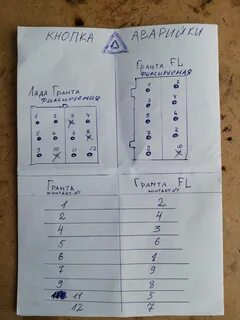 КНОПКА АВАРИЙКИ
Лада Гранта
фиксируемая
1 2 3 4
5 6 7 8
9 10 11 12
Гранта FL
фиксируемая
1 2
3
10
Гранта Гранта FL
контакт № контакт №
1 2
2 4
4 3
5 6
6 1
7 9
9 8
11 5
12 7